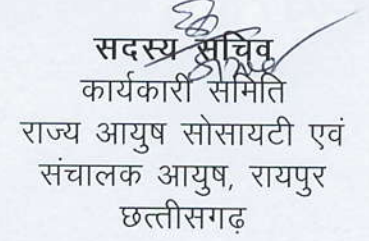 सदस्य सचिव
कार्यकारी समिति
राज्य आयुष सोसायटी एवं
संचालक आयुष, रायपुर
छत्तीसगढ़